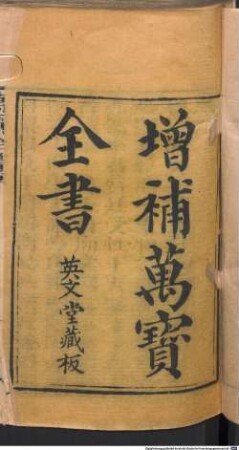 增補萬寳
全書
英文堂藏板